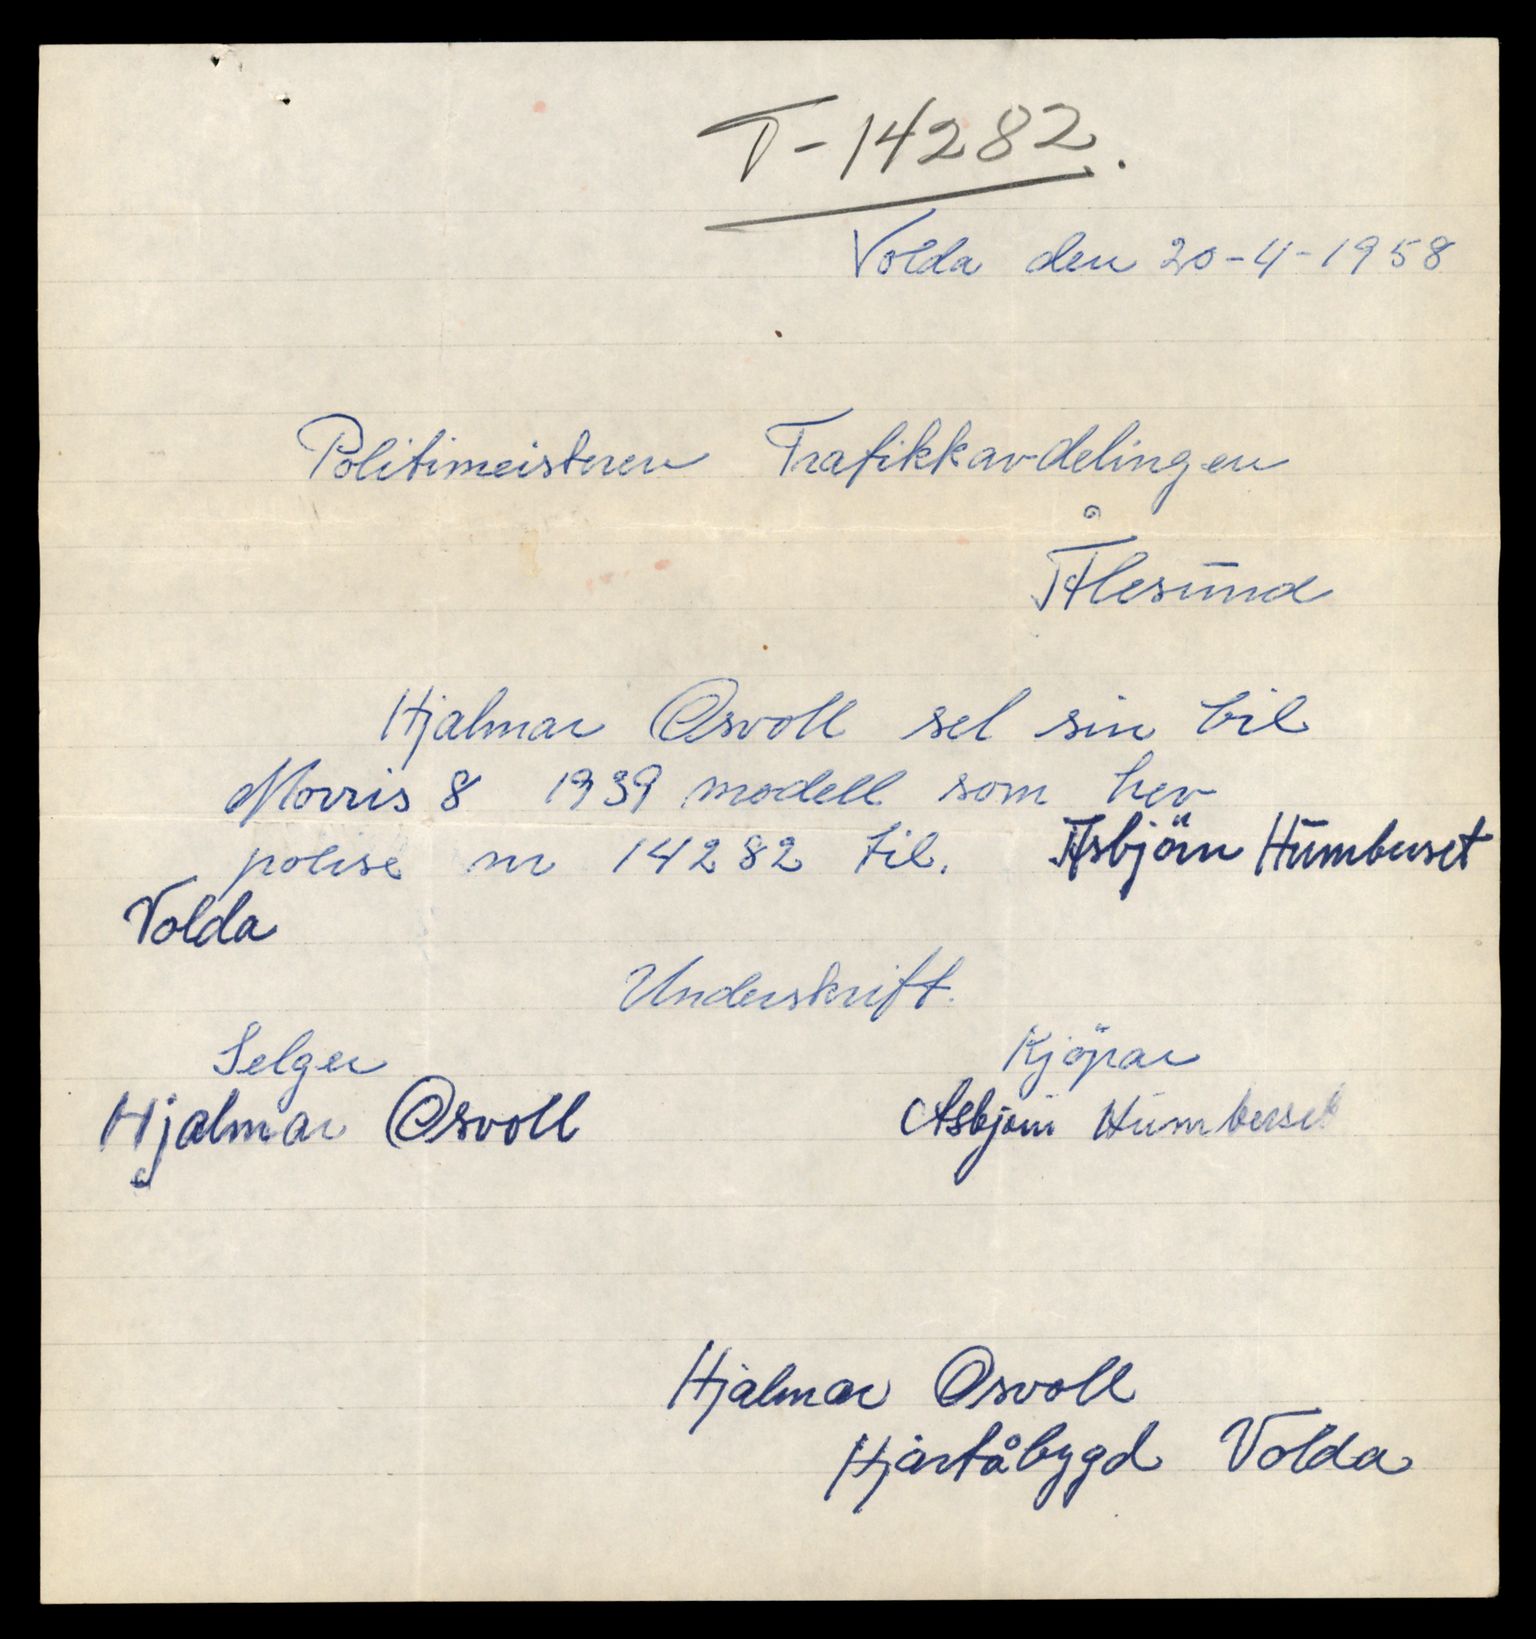 T-14282.
Volda den 20-4-1958
Politimeisteren Trafikkavdelingen
Ålesund
Hjalmar Osvoll sel sin bil
Morris 8 1939 modell som hev
polise nr 14282 til. Asbjörn Humberset
Volda
Underskrift.
Selger Kjöpar
Hjalmar Osvoll Asbjörn Humberset
Hjalmar Osvoll
Hjartåbygd Volda